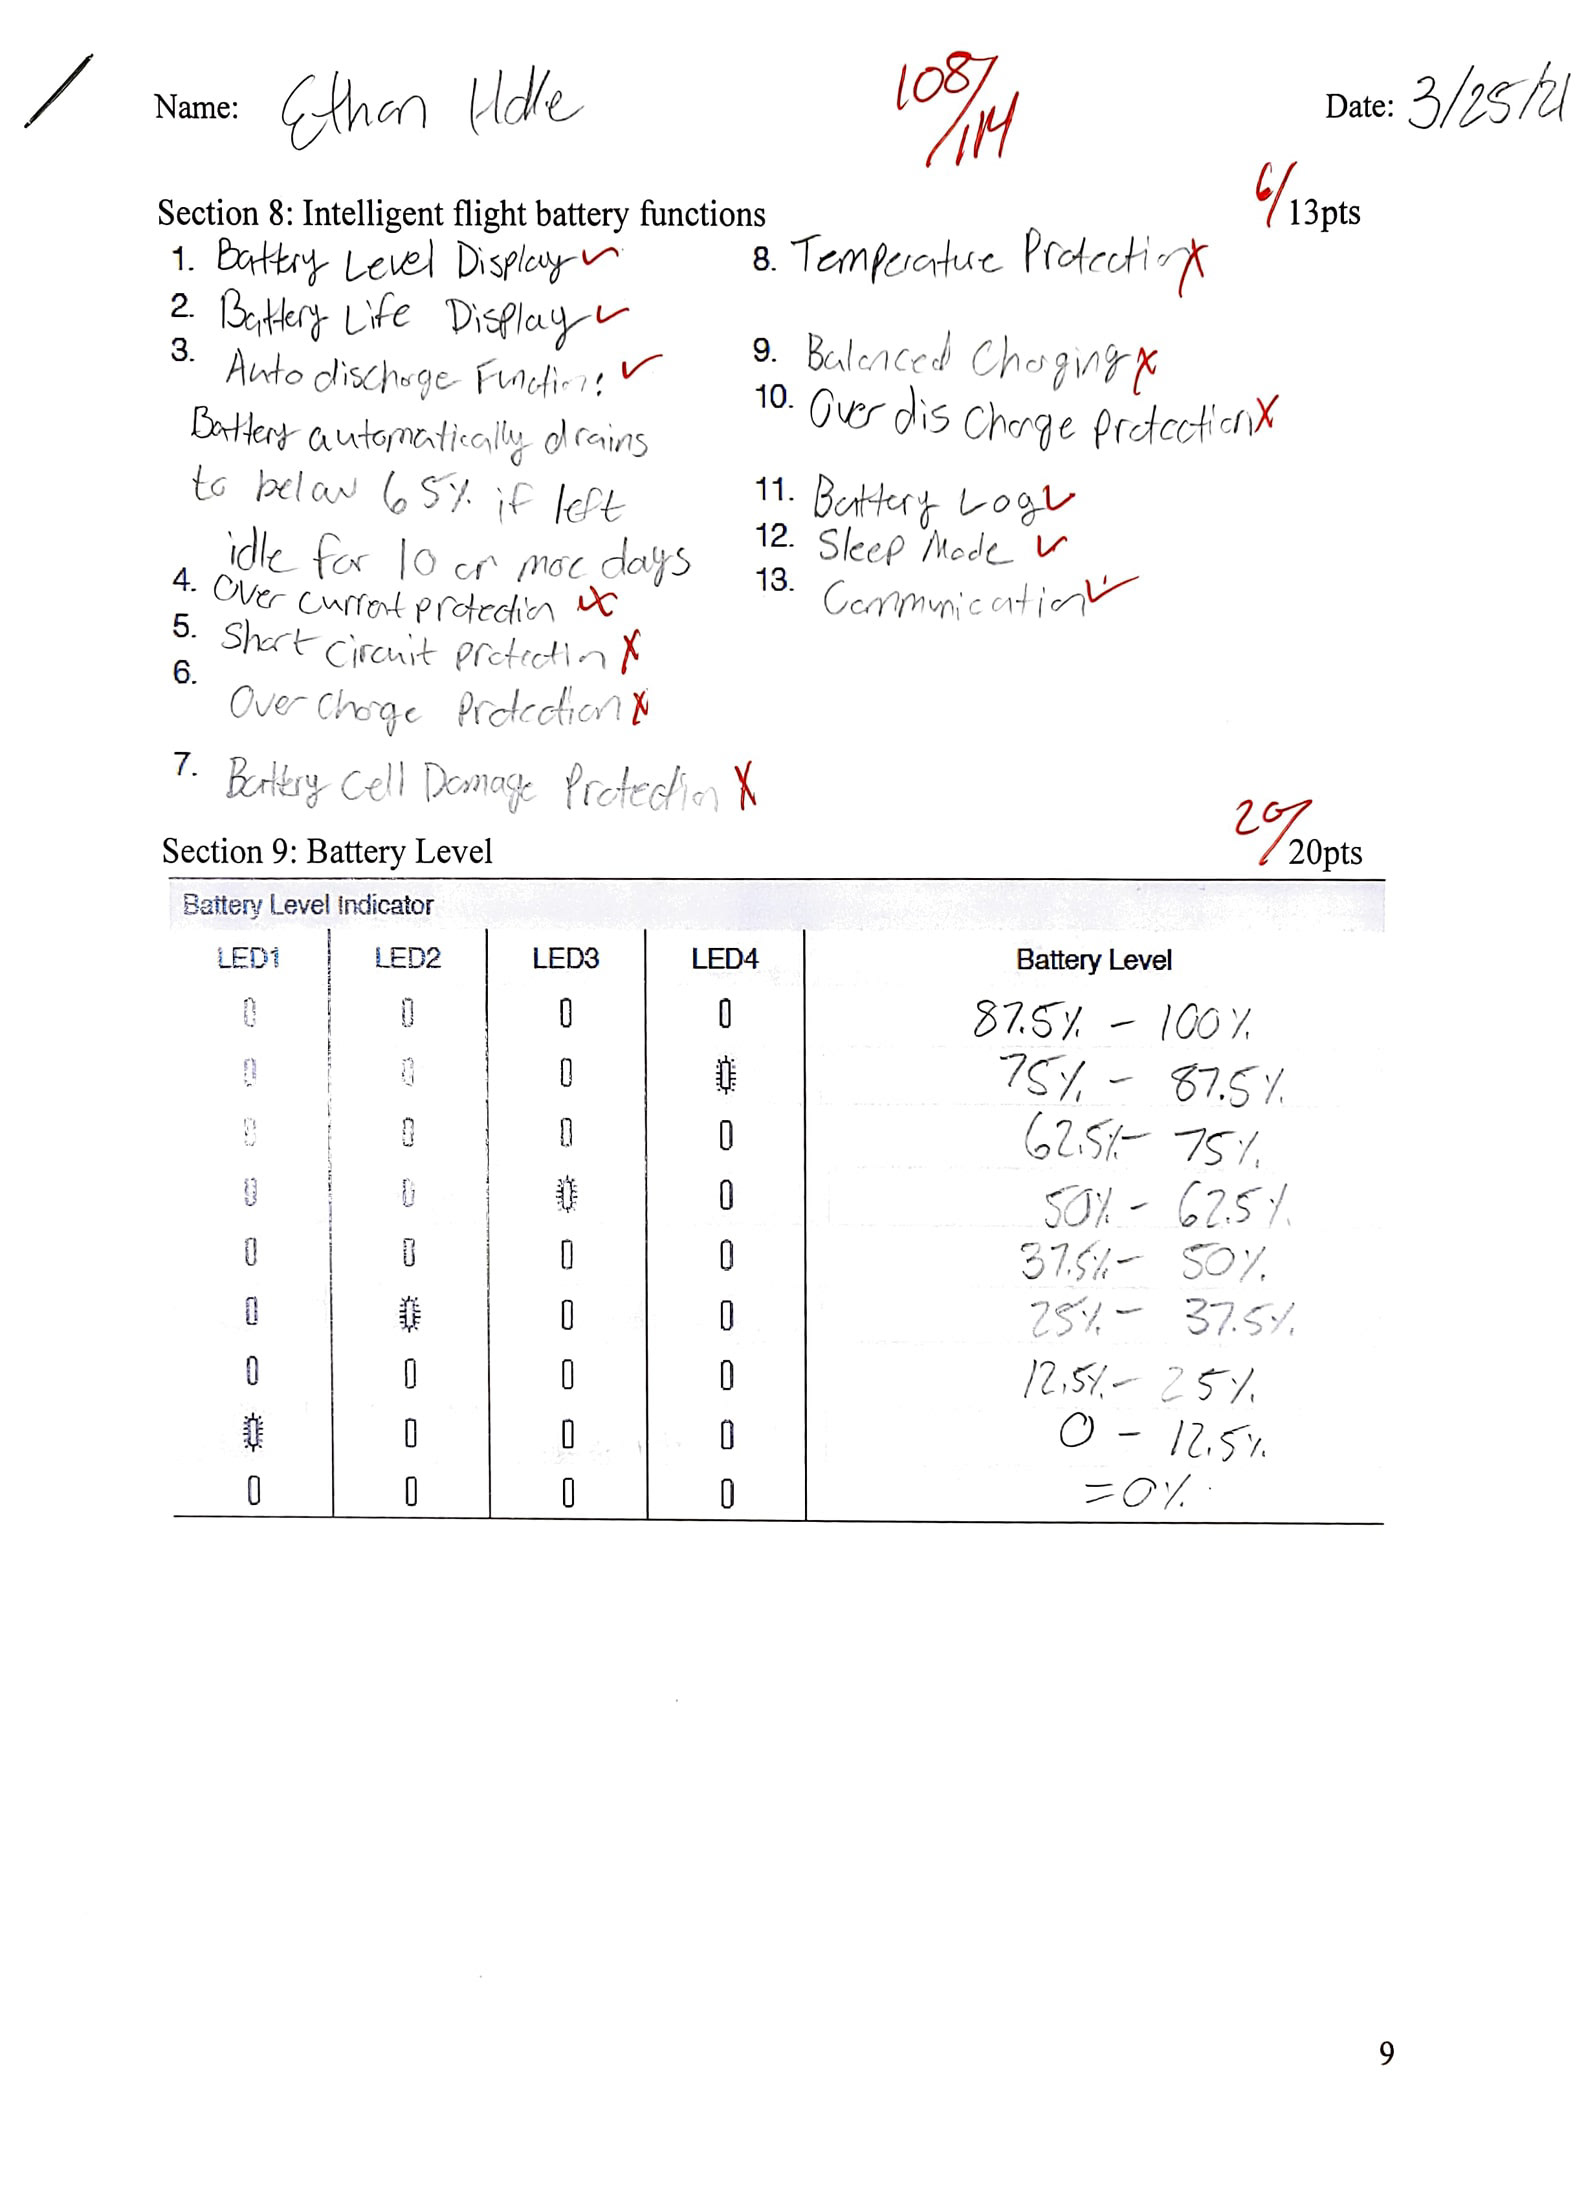 Name: Ethan
108/114
Date: 3/25/21
Section 8: Intelligent flight battery functions
6/13pts
1. Battery Level Display
2. Battery Life Display
3. Auto discharge Function:
Battery automatically drains
to below 65% if left
idle for 10 or more days
4. Over current protection
5. Short circuit protection
6. Over Charge Protection
7. Battery Cell Damage Protection
8. Temperature Protection
9. Balanced Charging
10. Over dis Charge Protection
11. Battery Log
12. Sleep Mode
13. Communication
Section 9: Battery Level
20/20pts
Battery Level Indicator
LED1 LED2 LED3 LED4 Battery Level
87.5% - 100%
75% - 87.5%
62.5% - 75%
50% - 62.5%
37.5% - 50%
25% - 37.5%
12.5% - 25%
0 - 12.5%
=0%
9